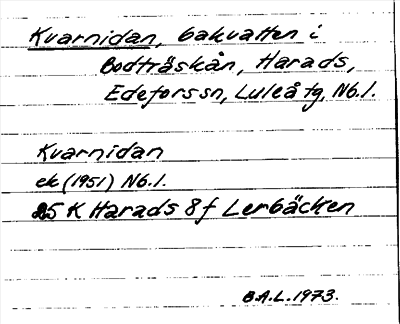 Kvarnidan, bakvatten i
Bodträskån, Harads,
Edefors sn, Luleå tg, Nb. l.
Kvarnidan
ek (1951) Nb. l.
25 K Harads 8f Lerbäcken
B.A.L. 1973.